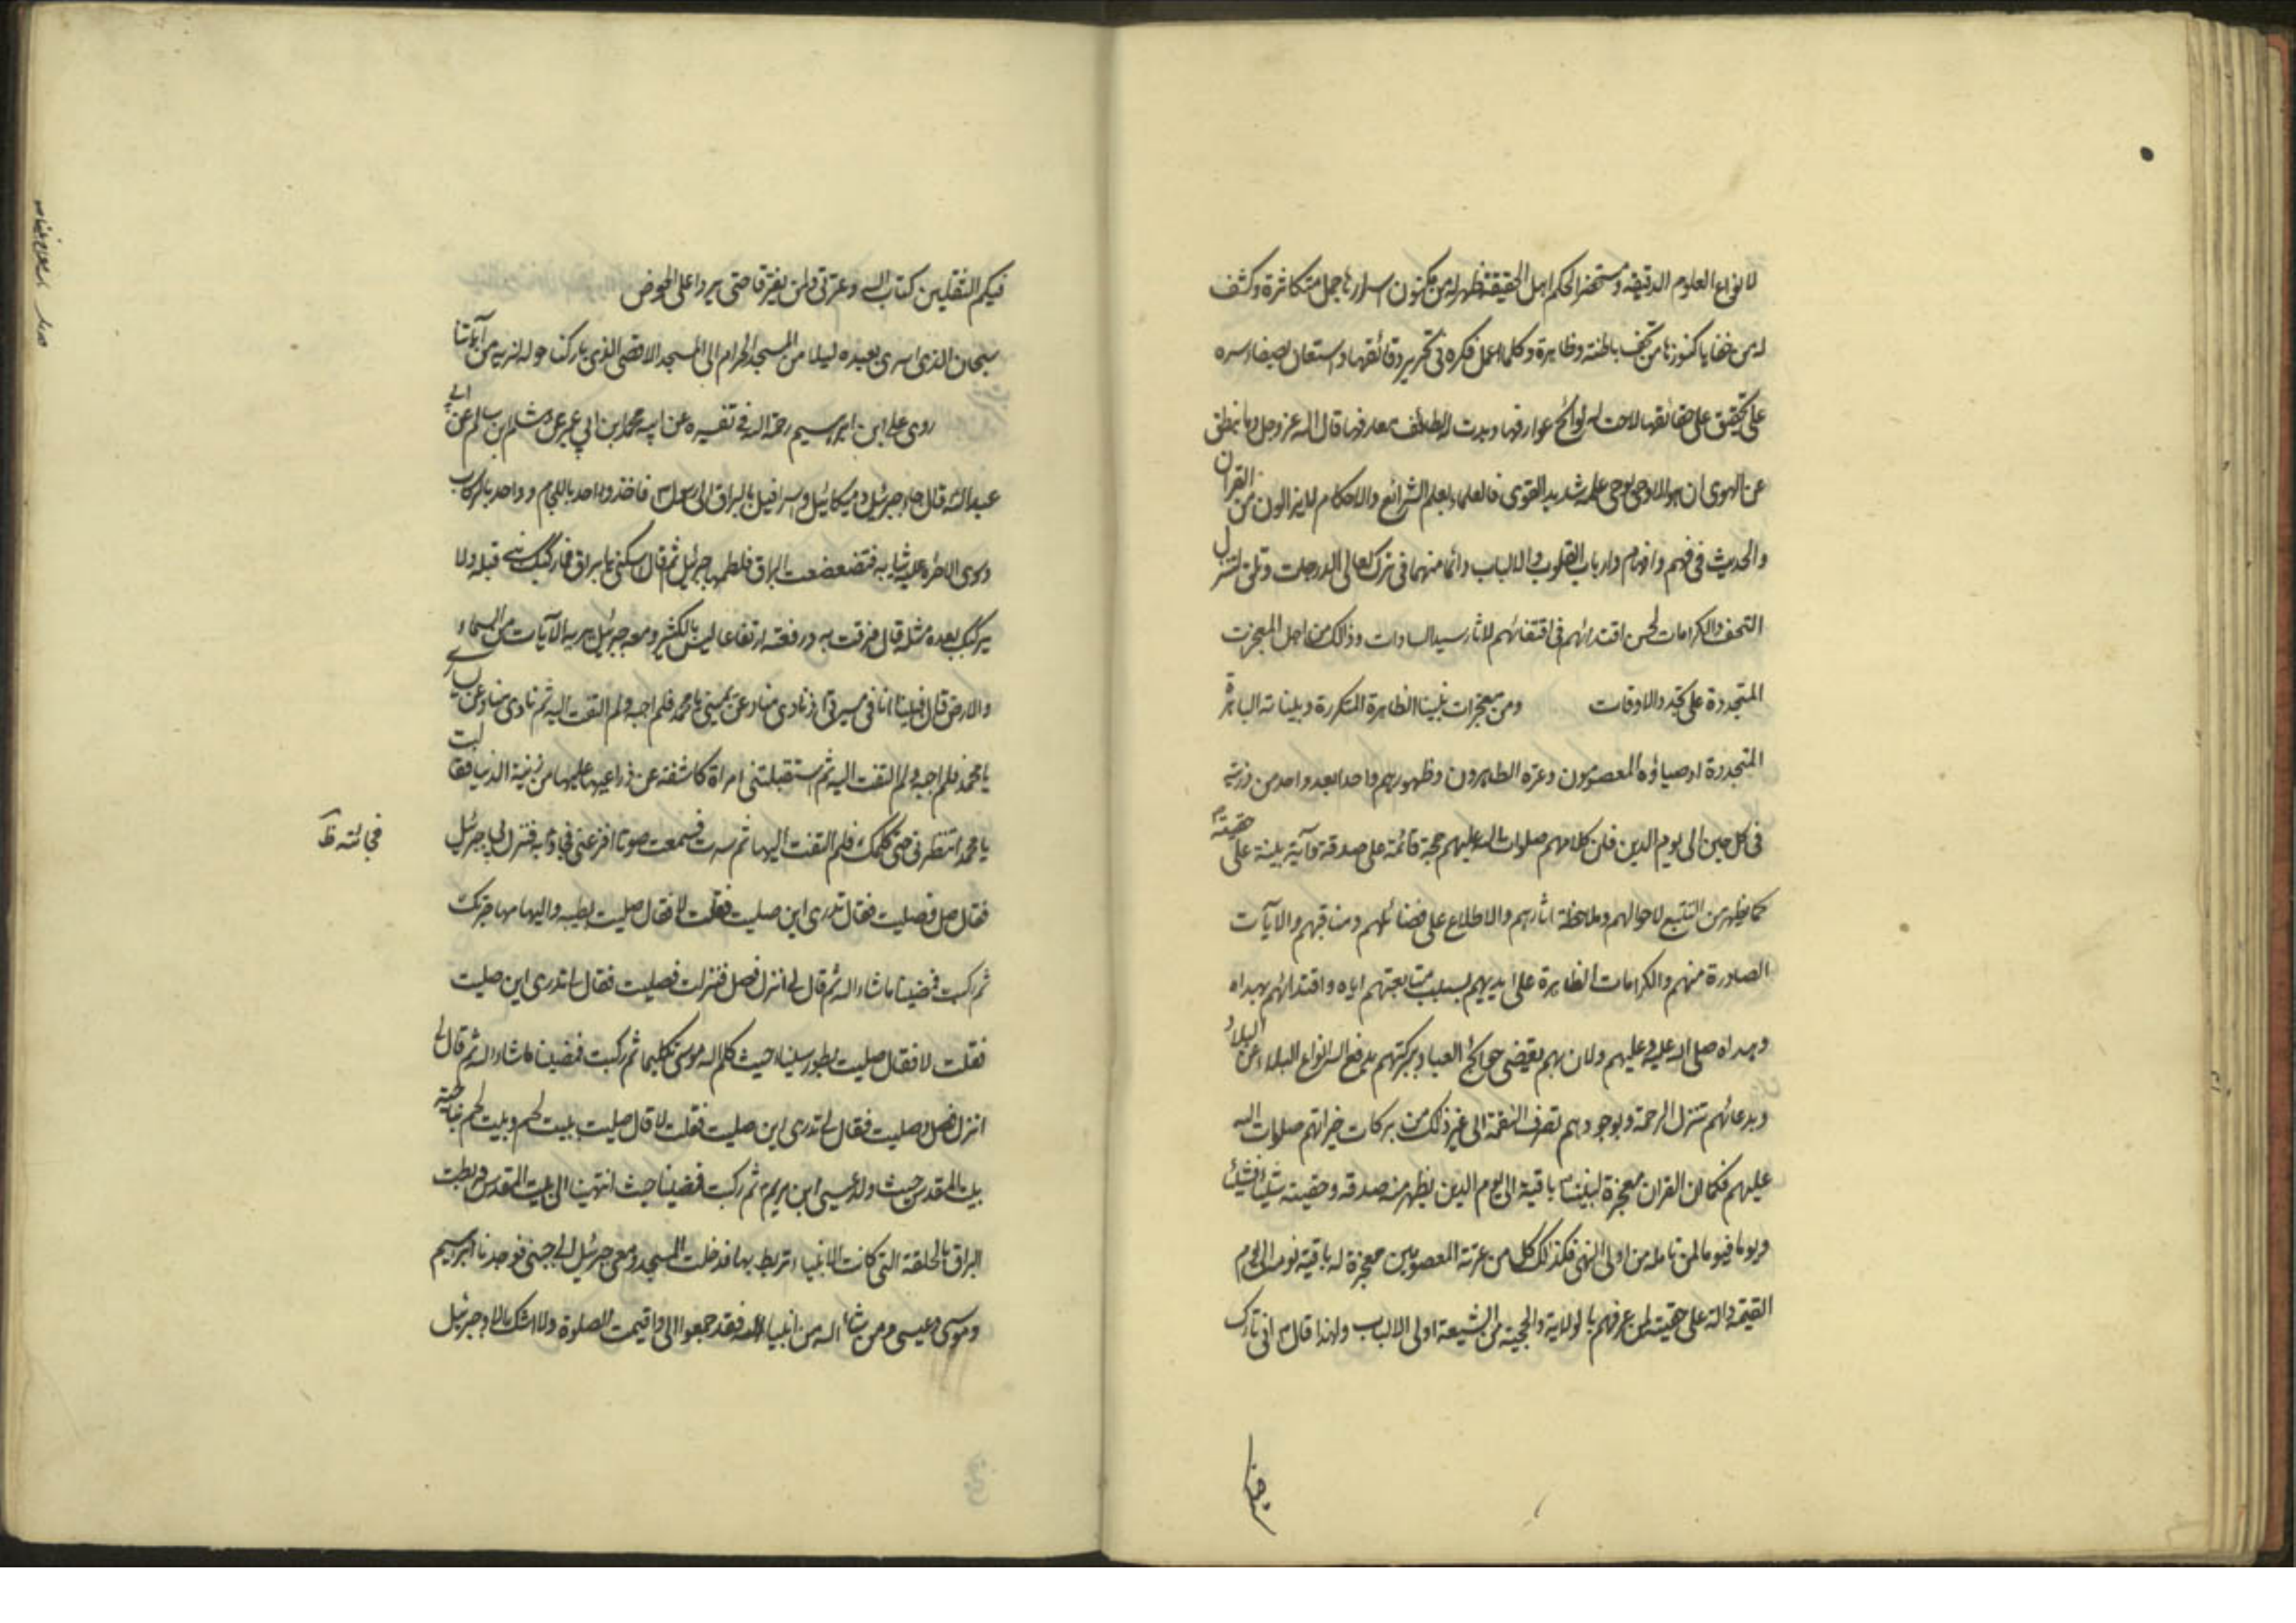 لانواع العلوم الدقيقة ومستحضر الحكم اهل الحقيقة فظهر له من مكنون اسرارها جمل متكاثرة وكشف
له من خفايا كنوزها من تحف باطنة وظاهرة وكلما اعمل فكره في تحرير دقائقها واستعان بصفاء سره
على تحقيق على حقائقها لاحت له لوائح عوارفها وبدت له لطائف معارفها قال الله عز وجل وما ينطق
عن الهوى ان هو الا وحي يوحى علمه شديد القوى فالعلماء بعلم الشرائع والاحكام لا يزالون من القران
والحديث في فهم وافهام وارباب القلوب والالباب دائما منهما في ترك لعالى الدرجات وتلق لتنزل
التحف والكرامات لحسن اقتدائهم في اقتفائهم لاثار سيد السادات وذالك من اجل المعجزات
المتجددة على تجدد الاوقات ومن معجزات نبينا الظاهرة المتكررة وبيناته الباهرة
المتجددة اوصياؤه المعصومون وعترته الطاهرون وظهورهم واحدا بعد واحد من ذريته
في كل حين الى يوم الدين فان كلامهم صلوات الله عليهم حجة قائمة على صدقه وآية بينة على حقيته
كما يظهر من التتبع لاحوالهم وملاحظة اثارهم والاطلاع على فضائلهم ومناقبهم والآيات
الصادرة منهم والكرامات الظاهرة على ايديهم بسبب متابعتهم اياه واقتدائهم بهداه
وبهداه صلى الله عليه وعليهم ولان بهم يقضى حوائج العباد وببركتهم يدفع الله انواع البلاء عن البلاد
وبدعائهم تنزل الرحمة وبوجودهم تصرف النقمة الى غير ذلك من بركات خيراتهم صلوات الله
عليهم فكما ان القران معجزة لنبينا باقية الى يوم الدين يظهر منه صدقه وحقيته شيئا فشيئا
ويوما فيوما لمن تامله من اولى النهى فكذالك كل من عترته المعصومين معجزة له باقية نوعه الى يوم
القيمة دالة على حقيته لمن عرفهم بالولاية والحجية من الشيعة اولى الالباب ولهذا قال اني تارك
فيكم الثقلين كتاب الله وعترتي ولن يفترقا حتى يردا على الحوض
سبحان الذي اسرى بعبده ليلا من المسجد الحرام الى المسجد الاقصى الذي باركنا حوله لنريه من آياتنا
روى علي ابن ابراهيم رحمه الله في تفسيره عن ابيه محمد ابن ابي عمير عن هشام بن سالم عن ابي
عبد الله قال جاء جبرئيل وميكائيل واسرافيل بالبراق الى رسول الله فاخذ واحد باللجام وواحد بالركاب
وسوى الاخر عليه ثيابه فتضعضعت البراق فلطمها جبرئيل ثم قال اسكني يا براق فما ركبك نبي قبله ولا
يركبك بعده مثله قال فرقت به ورفعته ارتفاعا ليس بالكثير ومعه جبرئيل يريه الآيات من السماء
والارض قال فبينا انا في مسيري اذ نادى مناد عن يميني يا محمد فلم اجبه ولم التفت اليه ثم نادى مناد عن يساري
يا محمد فلم اجبه ولم التفت اليه ثم استقبلتني امراة كاشفة عن ذراعيها عليها من زينة الدنيا فقالت
يا محمد انتظرني حتى اكلمك فلم التفت اليها ثم سرت فسمعت صوتا افزعني فجاوزته فنزل بي جبرئيل
فجائته ظ
فقال صل فصليت فقال تدري اين صليت فقلت لا فقال صليت بطيبه واليها مهاجرتك
ثم ركبت فمضينا ما شاء الله ثم قال لي انزل فصل فنزلت فصليت فقال لي تدري اين صليت
فقلت لا فقال صليت بطور سيناء حيث كلم الله موسى تكليما ثم ركبت فمضينا ما شاء الله ثم قال لي
انزل فصل فصليت فقال لي تدري اين صليت فقلت لا قال صليت ببيت لحم وبيت لحم بناحية
بيت المقدس حيث ولد عيسى ابن مريم ثم ركبت فمضينا حيث انتهينا الى بيت المقدس فربطت
البراق بالحلقة التي كانت الانبياء تربط بها فدخلت المسجد ومعي جبرئيل الى جنبي فوجدنا ابراهيم
وموسى وعيسى ومن شاء الله من انبياء الله فقد جمعوا الي واقيمت الصلوة ولا اشك الا وجبرئيل